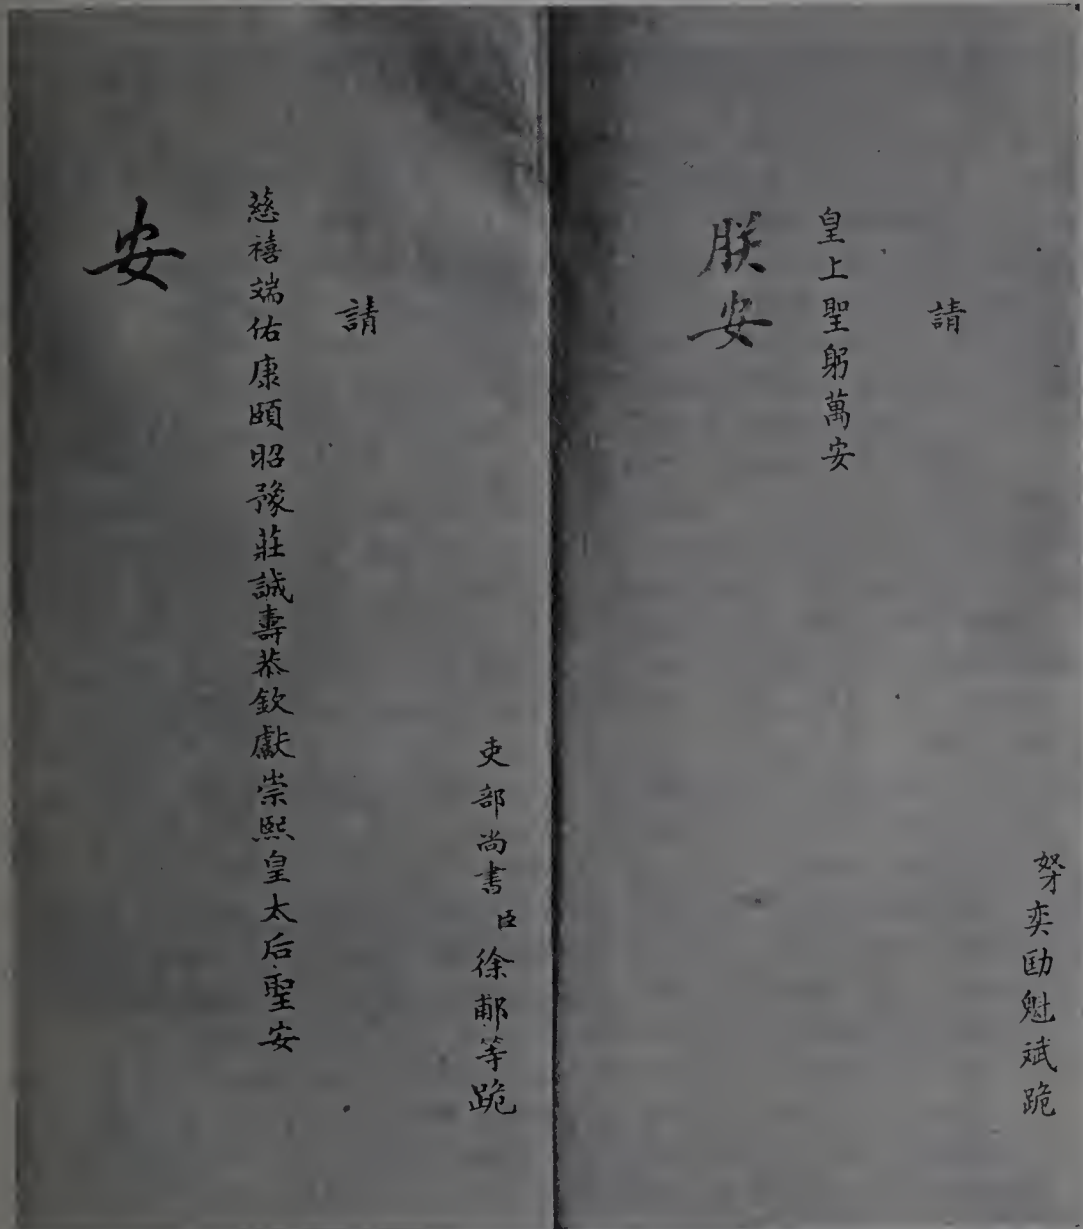 奴才奕劻魁斌跪
請
皇上聖躬萬安
朕安
吏部尚書臣徐郙等跪
請
慈禧端佑康頤昭豫莊誠壽恭欽獻崇熙皇太后聖安
安